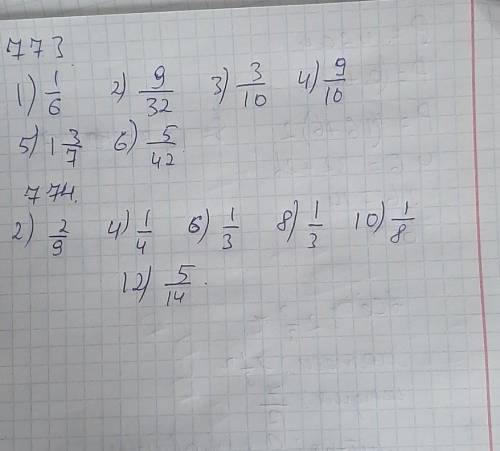 773.
1) 1/6 2) 9/32 3) 3/10 4) 9/10
5) 1 3/7 6) 5/42.
774.
2) 2/9 4) 1/4 6) 1/3 8) 1/3 10) 1/8
12) 5/14.